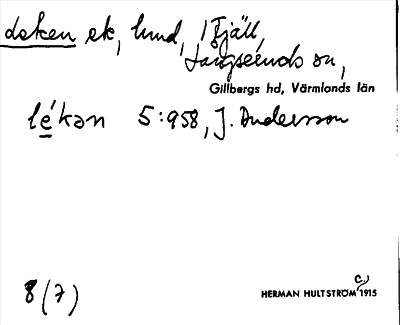 deken ek, lund, i Fjäll,
Långseruds sn,
Gillbergs hd, Värmlands län
lékən 5:958, J. Andersson
8 (7)
HERMAN HULTSTRÖM c., 1915